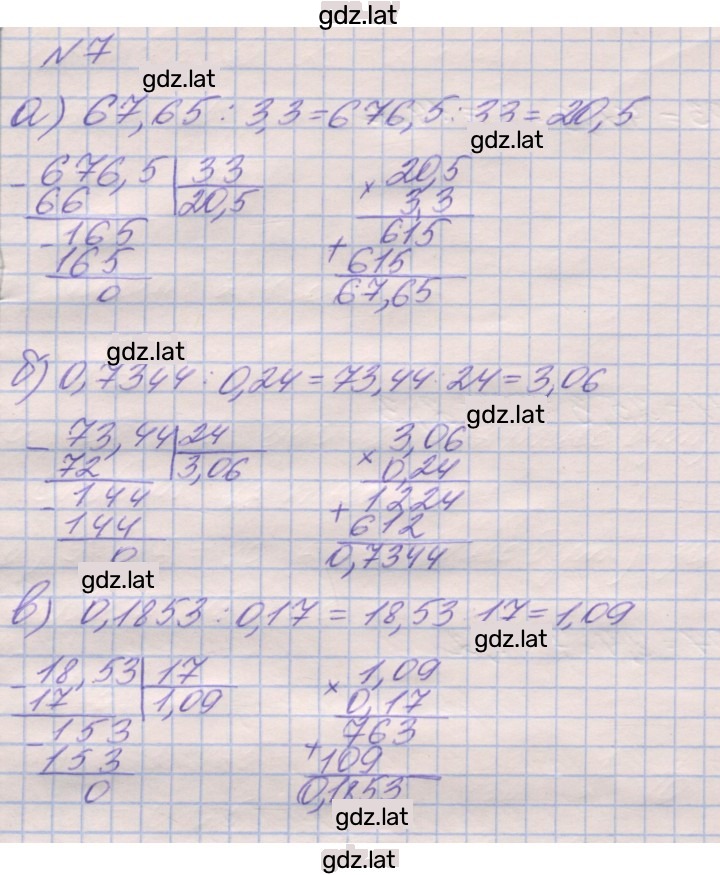 gdz.lat
№7
gdz.lat
а) 67,65 : 3,3 = 676,5 : 33 = 20,5
gdz.lat
- 676,5 | 33
66 20,5
- 165
165
0
× 20,5
3,3
+ 615
615
67,65
gdz.lat
б) 0,7344 : 0,24 = 73,44 : 24 = 3,06
gdz.lat
- 73,44 | 24
72 3,06
- 144
144
0
× 3,06
0,24
+ 1224
612
0,7344
gdz.lat
в) 0,1853 : 0,17 = 18,53 : 17 = 1,09
gdz.lat
- 18,53 | 17
17 1,09
- 153
153
0
× 1,09
0,17
+ 763
109
0,1853
gdz.lat
gdz.lat